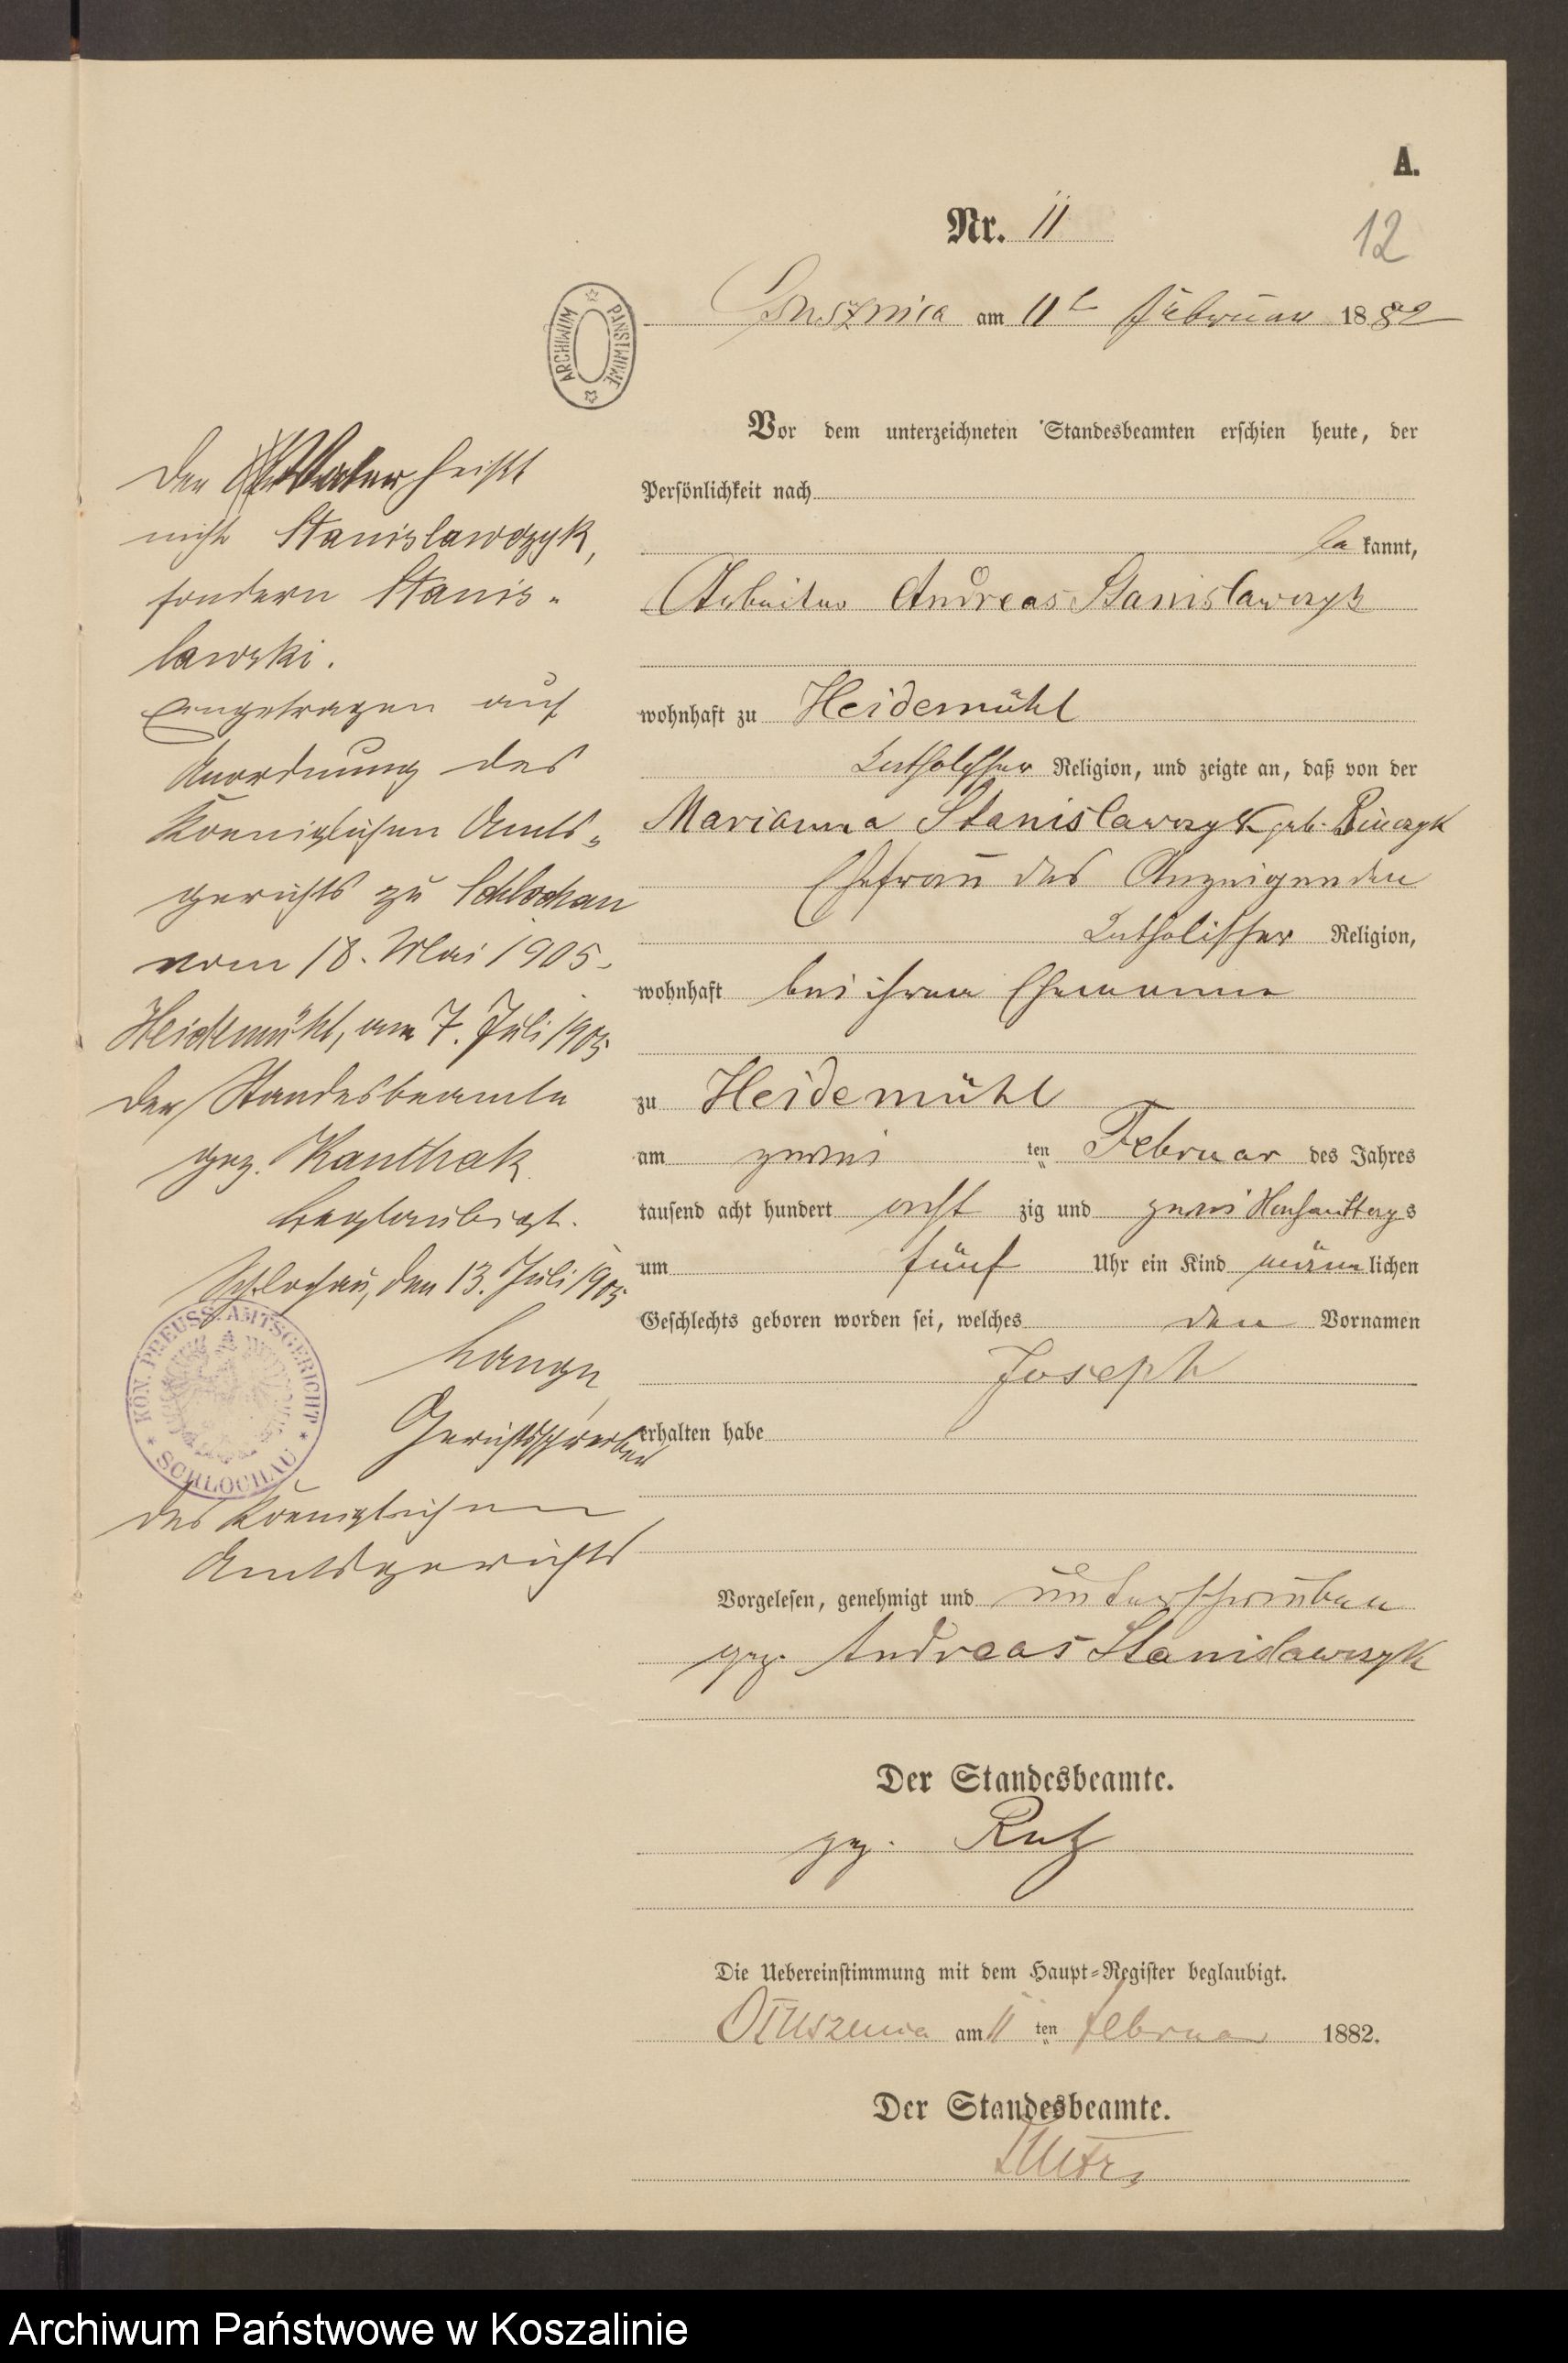 A.
Nr. 11
12
am 11t Februar 1882
ARCHIWUM PAŃSTWOWE
Vor dem unterzeichneten Standesbeamten erschien heute, der
Persönlichkeit nach
be kannt,
Arbeiter Andreas Stanislawczyk
wohnhaft zu Heidemühl
katholischer Religion, und zeigte an, daß von der
Marianna Stanislawczyk geb.
Ehefrau des Anzeigenden
katholischer Religion,
wohnhaft bei ihrem Ehemanne
zu Heidemühl
am zwei ten Februar des Jahres
tausend acht hundert acht zig und zwei
um fünf Uhr ein Kind männ lichen
Geschlechts geboren worden sei, welches den Vornamen
Joseph
erhalten habe
Vorgelesen, genehmigt und unterschrieben
gez. Andreas Stanislawczyk
Der Standesbeamte.
gez.
Die Uebereinstimmung mit dem Haupt-Register beglaubigt.
am 11 ten Februar 1882.
Der Standesbeamte.
Der Vater heißt
nicht Stanislawczyk,
sondern Stanis-
lawski.
Eingetragen auf
Anordnung des
Koeniglichen Amts-
gerichts zu Schlochau
vom 18. Mai 1905.
Heidemühl, am 7. Juli 1905
Der Standesbeamte
gez. Kanthak
Beglaubigt.
Schlochau, den 13. Juli 1905
Lange
Gerichtsschreiber
des Koeniglichen
Amtsgerichts
KÖN. PREUSS. AMTSGERICHT * SCHLOCHAU *
Archiwum Państwowe w Koszalinie